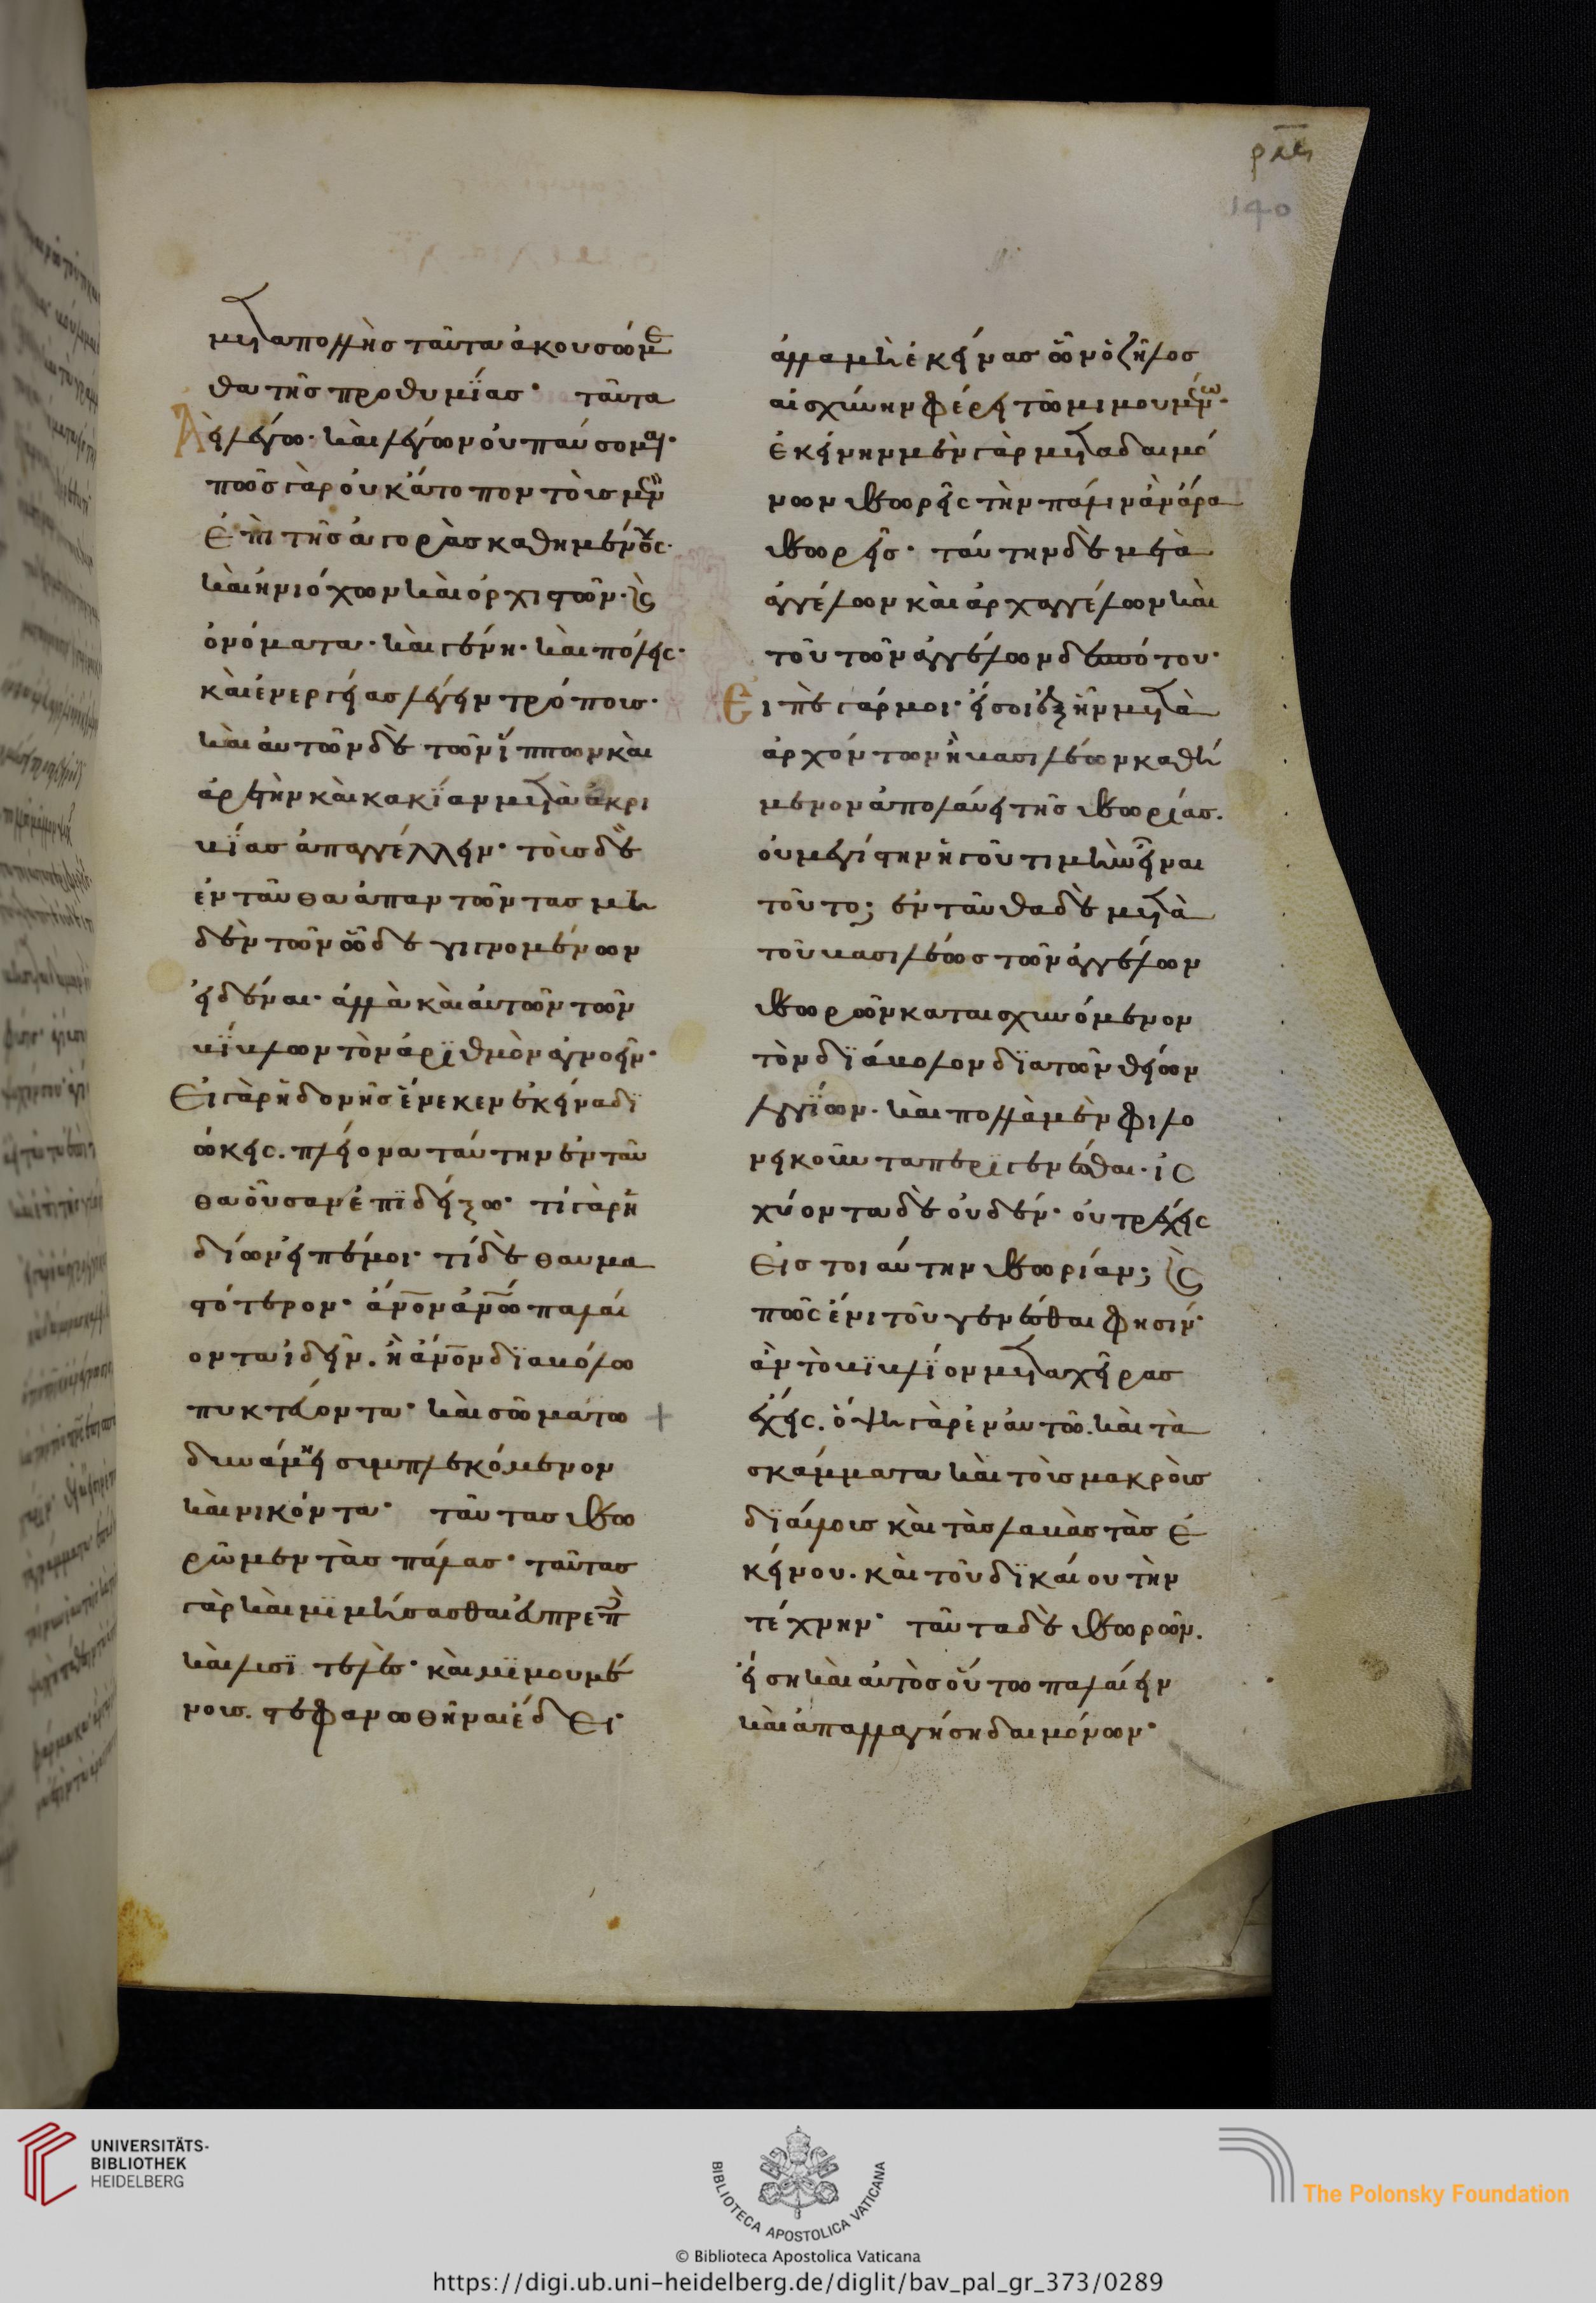 140
μετὰ πολλῆσ ταῦτα ἀκουσώμε
θα τῆσ προθυμΐασ· ταῦτα
ἀεὶ λέγω· καὶ λέγων οὐ παύσομαι·
πῶσ γὰρ οὐκ ἄτοπον τοῖσ μὲν
ἐπὶ τῆσ ἀγορᾶσ καθημένουσ·
καὶ ἡνιόχων καὶ ὀρχιστῶν· καὶ
ὀνόματα· καὶ γένη· καὶ πόλεις·
καὶ ἐνεργείασ λέγειν τρόποισ·
καὶ αὐτῶν δὲ τῶν ἵππων καὶ
ἀρετὴν καὶ κακΐαν μετὰ ἀκρι
βΐασ ἀπαγγέλλειν· τοῖσ δὲ
ἐνταῦθα ἀπαντῶντασ μη
δὲν τῶν ὧδε γιγνομένων
εἰδέναι· ἀλλὰ καὶ αὐτῶν τῶν
βΐβλων τὸν ἀρϊθμὸν ἀγνοεῖν·
Εἰ γὰρ ἡδονῆσ ἕνεκεν ἐκεῖνα δϊ
ώκεις. πλείονα ταύτην ἐνταῦ
θα οὖσαν ἐπϊδείξω· τί γὰρ ἥ
δίων εἰπέ μοι· τί δὲ θαυμα
στότερον· ἄνον ἀνω παλαί
οντα ἰδεῖν. ἢ ἄνον δϊαβόλω
πυκτεύοντα· καὶ σῶμα τω
δυνάμει συμπλεκόμενον
καὶ νικόντα· ταῦτασ θεω
ρῶμεν τὰσ πάλασ· ταῦτασ
γὰρ καὶ μϊμήσασθαι εὐπρεπὲς
καὶ λυσϊτελὲσ· καὶ μϊμουμέ
νοισ. στεφανωθῆναι ἔδει·
ἀλλὰ μὴ ἐκείνασ ὧν ὁ ζῆλοσ
αἰσχύνην φέρει τῶ μιμουμένω·
ἐκείνην μὲν γὰρ μετὰ δαιμό
νων θεωρεῖς τὴν πάλιν ἂν ἄρα
θεωρεῖσ· ταύτην δὲ μετὰ
ἀγγέλων καὶ ἀρχαγγέλων καὶ
τοῦ τῶν ἀγγέλων δεσπότου·
Εἰπὲ γάρ μοι· εἴ σοι ἐξῆν μετὰ
ἀρχόντων ἢ βασιλέων καθή
μενον ἀπολαύει τῆσ θεωρίασ.
οὐ μεγίστην ἡγοῦ τιμὴν εἶναι
τοῦτο; ἐνταῦθα δὲ μετὰ
τοῦ βασιλέωσ τῶν ἀγγέλων
θεωρῶν καταισχυνόμενον
τὸν δϊάβολον δϊὰ τῶν θείων
λογΐων. καὶ πολλὰ μὲν φιλο
νεικοῦντα περϊγενέσθαι. ἰσ
χύοντα δὲ οὐδὲν· οὐ τρέχεις
εἰσ τοιαύτην θεωρίαν; καὶ
πῶς ἔνι τοῦ γενέσθαι φησίν·
ἂν τὸ βϊβλΐον μετὰ χεῖρασ
ἔχεις. ὄψη γὰρ ἐν αὐτῶ. καὶ τὰ
σκάμματα καὶ τοῖσ μακροῖσ
δϊαύλοισ καὶ τὰσ λαβὰσ τὰσ ἐ
κείνου. καὶ τοῦ δϊκαίου τὴν
τέχνην· ταῦτα δὲ θεωρῶν.
εἴση καὶ αὐτὸσ οὕτω παλαίειν
καὶ ἀπαλλαγήση δαιμόνων·
UNIVERSITÄTS-
BIBLIOTHEK
HEIDELBERG
BIBLIOTECA APOSTOLICA VATICANA
© Biblioteca Apostolica Vaticana
The Polonsky Foundation
https://digi.ub.uni-heidelberg.de/diglit/bav_pal_gr_373/0289